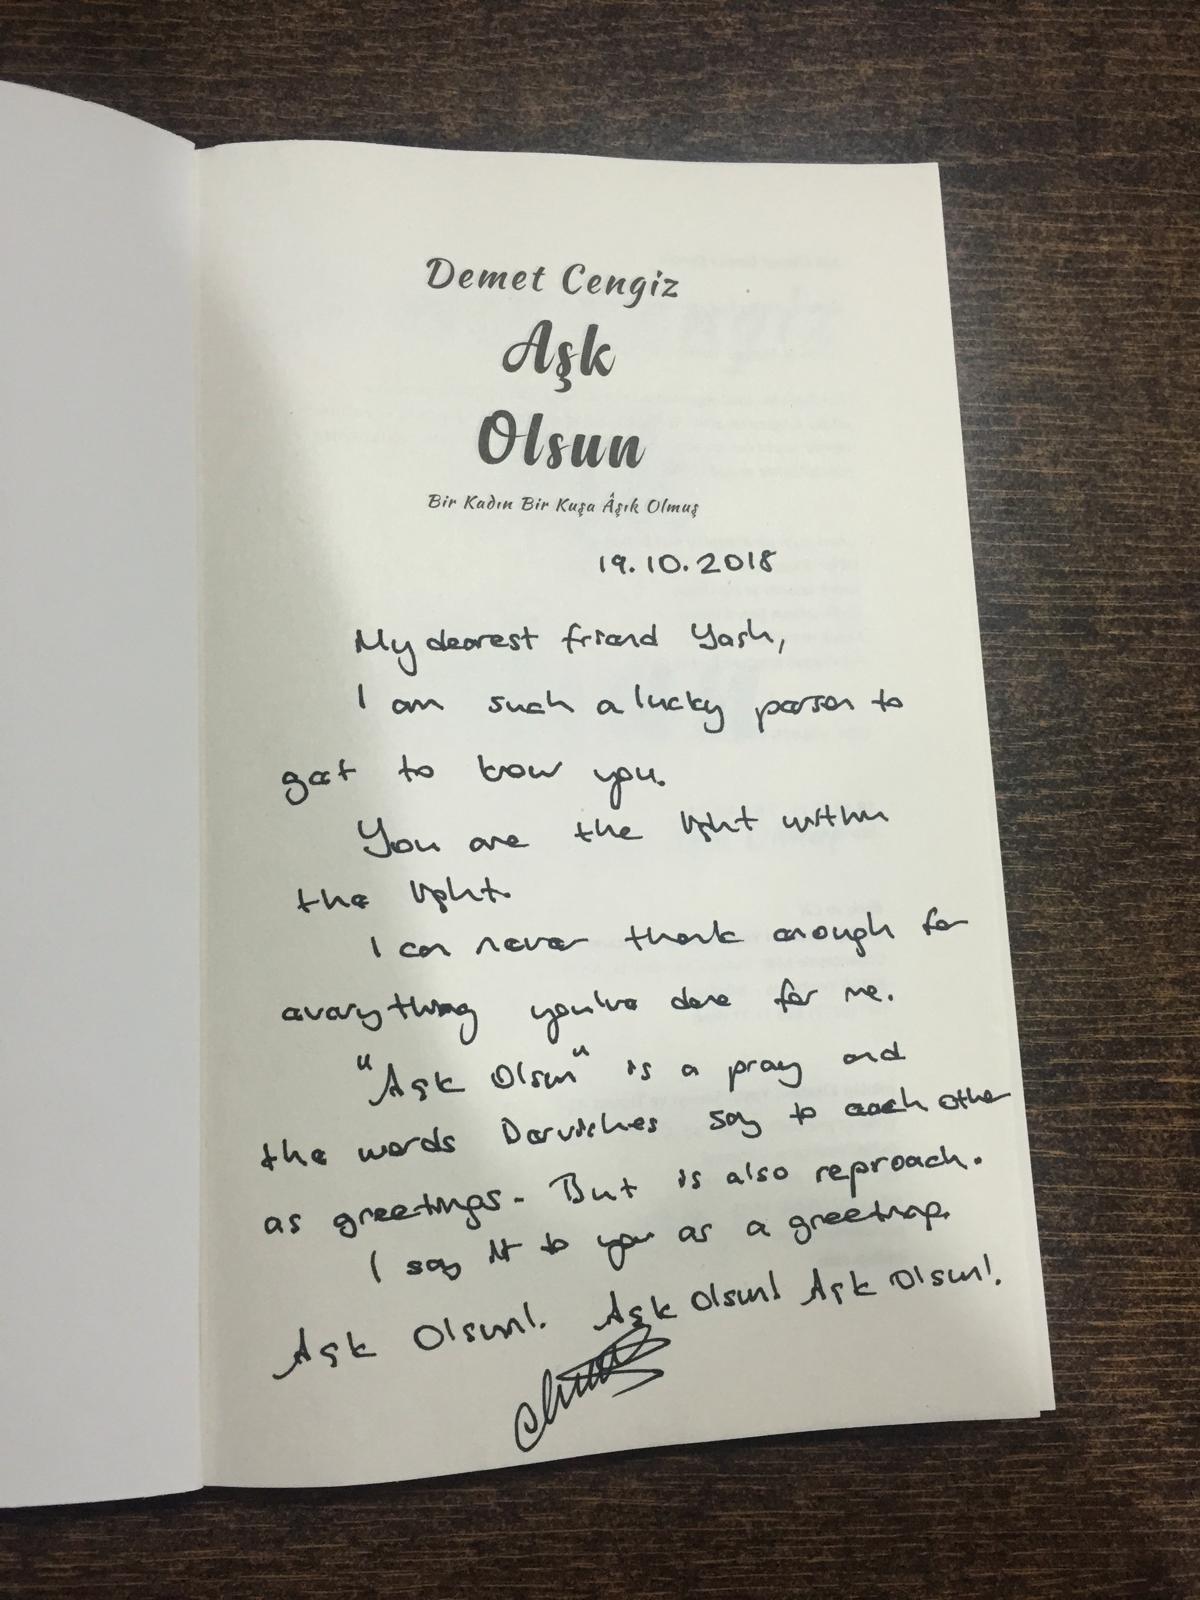 Demet Cengiz
Aşk
Olsun
Bir Kadın Bir Kuşa Âşık Olmuş
19.10.2018
My dearest friend Yash,
I am such a lucky person to
get to know you.
You are the light within
the light.
I can never thank enough for
everything you've done for me.
"Aşk Olsun" is a pray and
the words Dervishes say to each other
as greetings. But is also reproach.
I say it to you as a greeting.
Aşk Olsun!. Aşk Olsun! Aşk Olsun!.